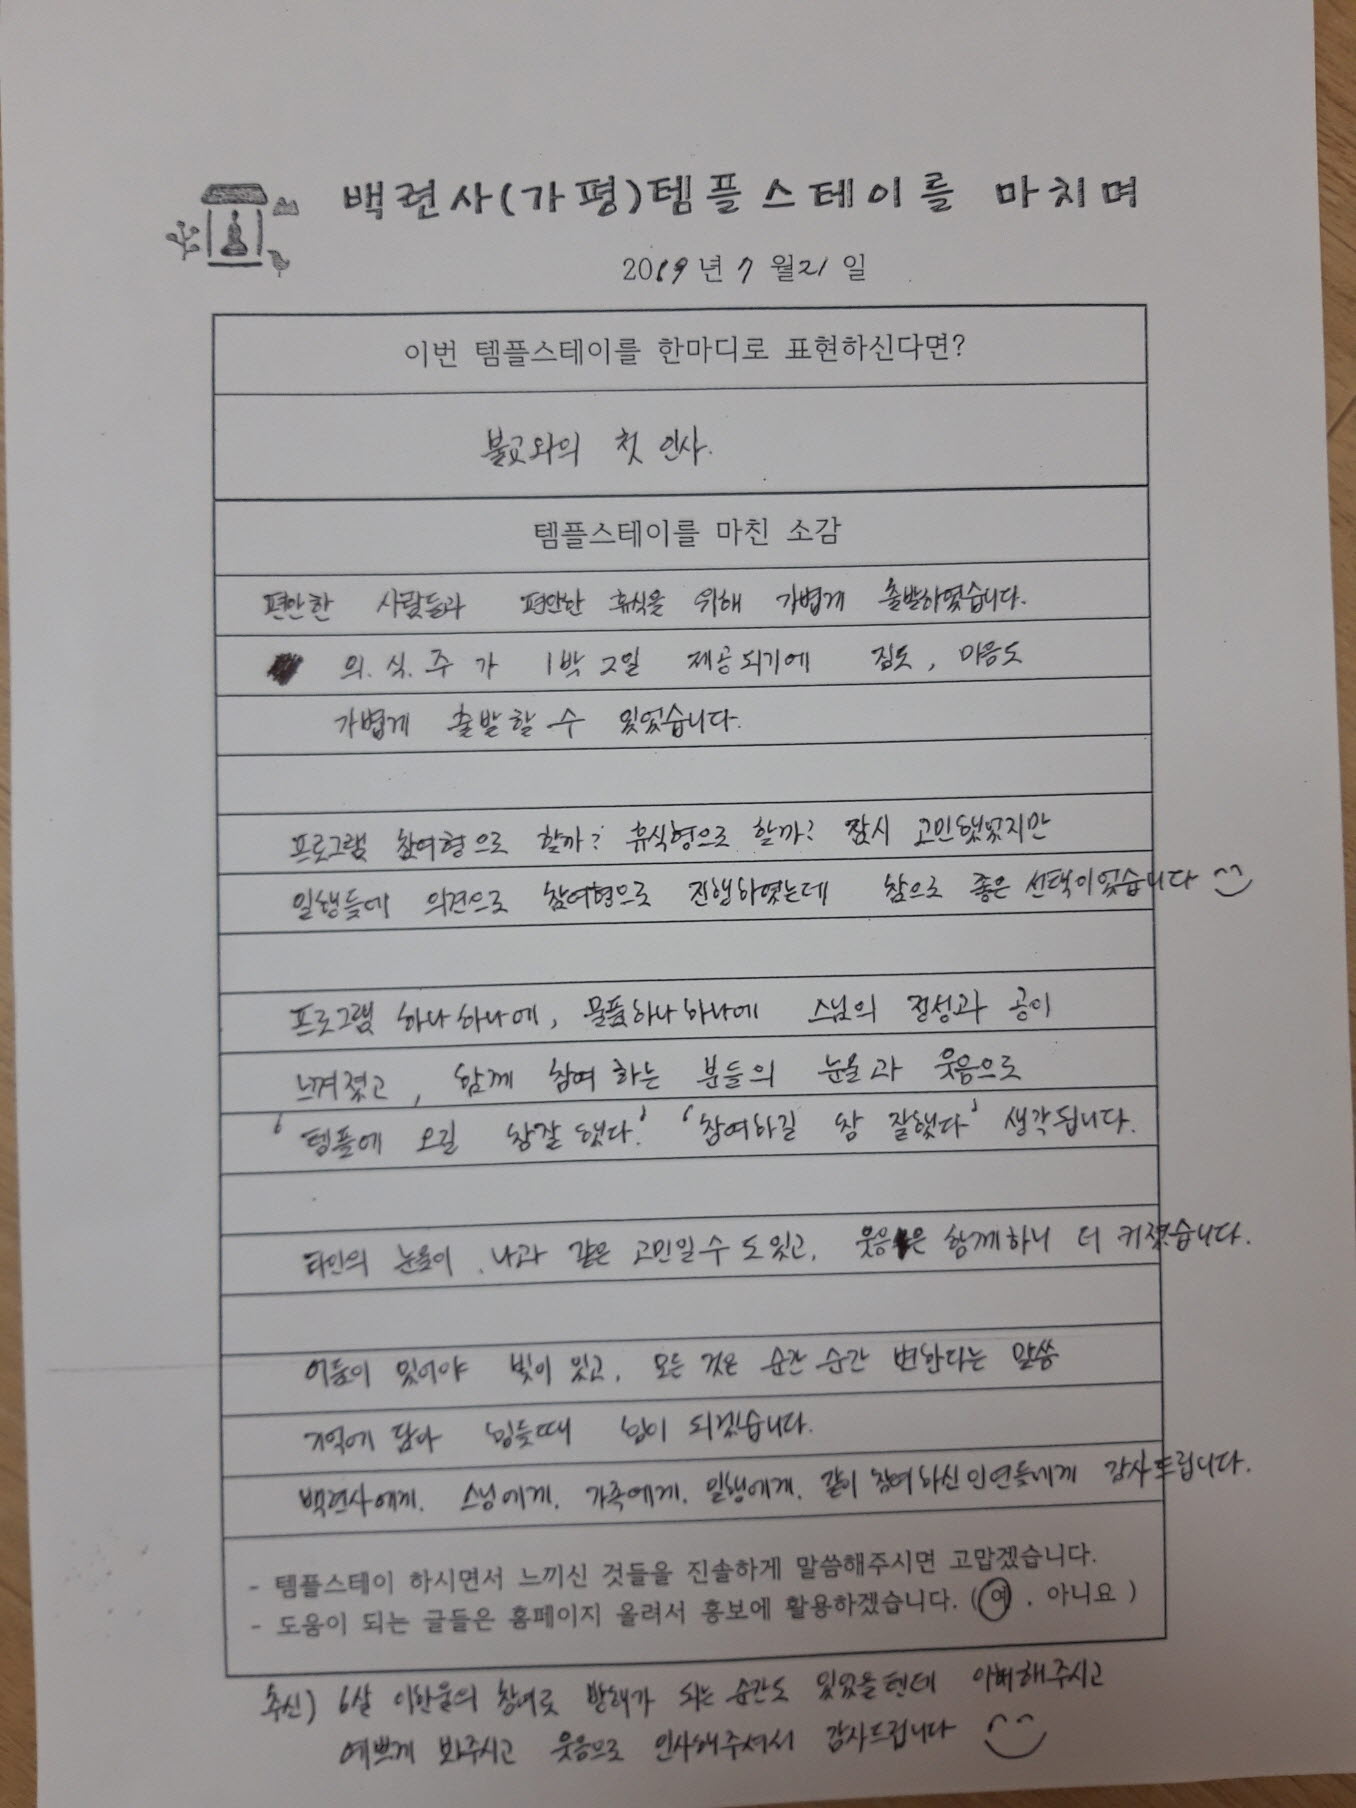 백련사(가평)템플스테이를 마치며
2019년 7월21일
이번 템플스테이를 한마디로 표현하신다면?
불교와의 첫 인사.
템플스테이를 마친 소감
편안한 사람들과 편안한 휴식을 위해 가볍게 출발하였습니다.
의.식.주 가 1박 2일 제공되기에 짐도, 마음도
가볍게 출발할 수 있었습니다.
프로그램 참여형으로 할까? 휴식형으로 할까? 잠시 고민했었지만
일행들에 의견으로 참여형으로 진행하였는데 참으로 좋은 선택이었습니다
프로그램 하나하나에, 물품하나하나에 스님의 정성과 공이
느껴졌고, 함께 참여 하는 분들의 눈물과 웃음으로
'템플에 오길 참잘했다.' '참여하길 참 잘했다' 생각됩니다.
타인의 눈물이 나과 같은 고민일수 도있고, 웃음은 함께하니 더 커졌습니다.
어둠이 있어야 빛이 있고, 모든 것은 순간 순간 변한다는 말씀
기억에 담아 힘들때 힘이 되겠습니다.
백련사에게. 스님에게. 가족에게. 일행에게. 같이 참여하신인연들에게 감사드립니다.
- 템플스테이 하시면서 느끼신 것들을 진솔하게 말씀해주시면 고맙겠습니다.
- 도움이 되는 글들은 홈페이지 올려서 홍보에 활용하겠습니다. (예 , 아니요 )
추신) 6살 이한울의 참여로 방해가 되는 순간도 있었을텐데 이뻐해주시고
예쁘게 봐주시고 웃음으로 인사해주셔서 감사드립니다